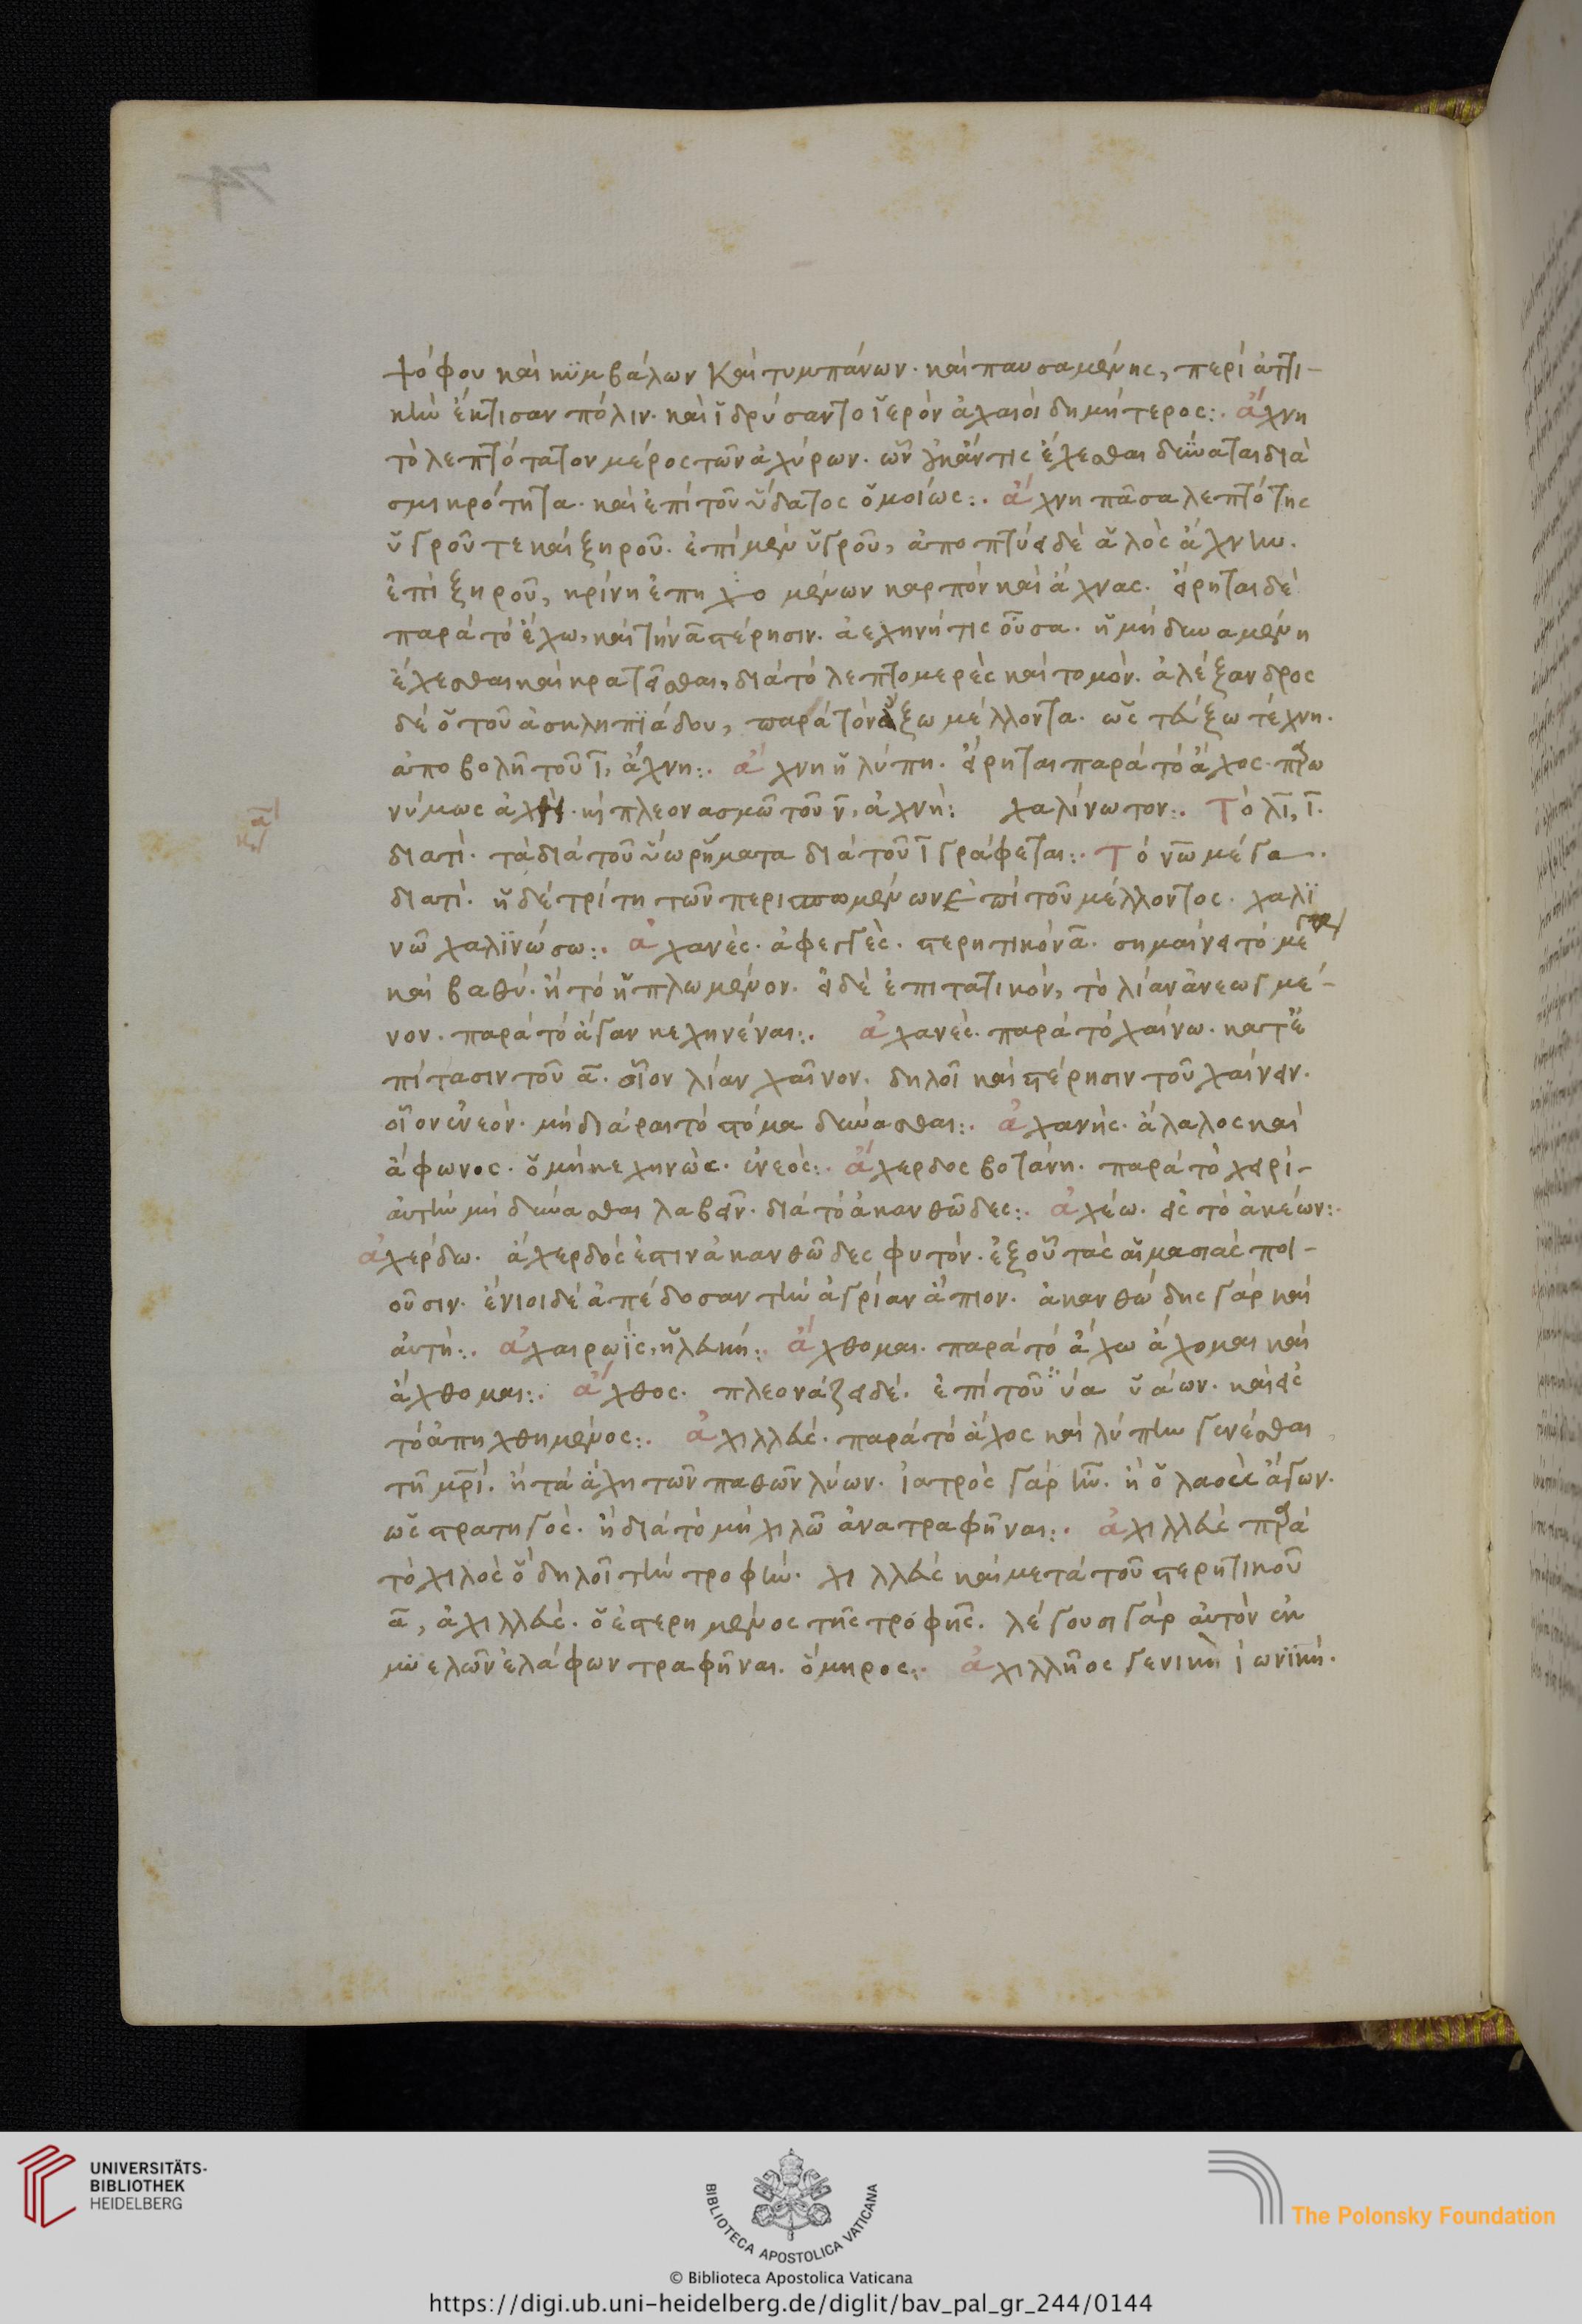 ψόφου καὶ κϋμβάλων καὶ τυμπάνων· καὶ παυσαμένης, περὶ ἀττι-
κὴν ἔκτισαν πόλιν· καὶ ἱδρύσαντο ἱερὸν ἀχαιοὶ δημήτερος:· ἄχνη
τὸ λεπτότατον μέρος τῶν ἀχύρων· ὧν ἔχεσθαι δύναται διὰ
σμικρότητα· καὶ ἐπὶ τοῦ ὕδατος ὁμοίως:· ἄχνη πᾶσα λεπτότης
ὑγροῦ τε καὶ ξηροῦ· ἐπὶ μὲν ὑγροῦ, ἀποπτύει δὲ ἁλὸς ἄχνην·
ἐπὶ ξηροῦ, κρίνη ἐπηχομένων καρπόν καὶ ἄχνας· εἴρηται δὲ
παρὰ τὸ ἔχω, καὶ τὴν α στέρησιν· ἀεχηνή τις οὖσα· ἡ μὴ δυναμένη
ἔχεσθαι καὶ κρατεῖσθαι, διὰ τὸ λεπτομερὲς καὶ τομόν· ἀλέξανδρος
δὲ ὁ τοῦ ἀσκληπϊάδου, παρὰ τὸν ἄξω μέλλοντα· ὡς τεύξω τέχνη·
ἀποβολῆ τοῦ ῑ, ἄχνη:· ἄχνη ἡ λύπη· εἴρηται παρὰ τὸ ἄχος· παρω
νύμως καὶ πλεονασμῶ τοῦ ν̄, ἀχνή: χαλίνωτον:· Τὸ λῑ, ῑ·
διατί· τὰ διὰ τοῦ ϊω ῥήματα διὰ τοῦ ῑ γράφεται:· Τὸ νω μέγα·
διατί· ἡ δὲ τρίτη τῶν περισπωμένων ἐπὶ τοῦ μέλλοντος· χαλϊ
νῶ χαλϊνώσω:· ἀχανὲς· ἀφεγγὲς· στερητικόν ᾱ· σημαίνει τὸ μέγα
καὶ βαθύ· ἢ τὸ ἡπλωμένον· εἰ δὲ ἐπιτατικόν, τὸ λίαν ἀνεωγμέ-
νον· παρὰ τὸ ἄγαν κεχηνέναι:· ἀχανές· παρὰ τὸ χαίνω· κατ' ἐ
πίτασιν τοῦ ᾱ· οἷον λίαν χαῖνον· δηλοῖ καὶ στέρησιν τοῦ χαίνειν·
οἷον ἐνεόν· μὴ διάραι τὸ στόμα δύνασθαι:· ἀχανής· ἄλαλος καὶ
ἄφωνος· ὁ μὴ κεχηνὼς· ἐνεός:· ἄχερδος βοτάνη· παρὰ τὸ χειρὶ-
αὐτὴν μὴ δύνασθαι λαβεῖν· διὰ τὸ ἀκανθῶδες:· ἀχέω· εἰς τὸ ἀκέων:·
ἀχέρδω· ἄχερδός ἐστιν ἀκανθῶδες φυτόν· ἐξ οὗ τὰς αἱμασιὰς ποι-
οῦσιν· ἔνιοι δὲ ἀπέδοσαν τὴν ἀγρίαν ἄπιον· ἀκανθώδης γὰρ καὶ
αὐτή:· ἀχαιρωΐς, ἡ λευκή:· ἄχθομαι· παρὰ τὸ ἄχω ἄχομαι καὶ
ἄχθομαι:· ἄχθος· πλεονάζει δὲ· ἐπὶ τοῦ ϋα ὑάων· καὶ εἰς
τὸ ἀπηχθημένος:· ἀχιλλεύς· παρὰ τὸ ἄχος καὶ λύπην γενέσθαι
τῆ μρι̅· ἢ τὰ ἄχη τῶν παθῶν λύων· ἰατρὸς γὰρ ἦν· ἢ ὁ λαοὺς ἄγων·
ὡς στρατηγός· ἢ διὰ τὸ μὴ χιλῶ ἀνατραφῆναι:· ἀχιλλεύς παρὰ
τὸ χιλὸς ὃ δηλοῖ τὴν τροφήν· χιλλεύς καὶ μετὰ τοῦ στερητικοῦ
ᾱ, ἀχιλλεύς· ὁ ἐστερημένος τῆς τροφῆς· λέγουσι γὰρ αὐτὸν ἐκ
μϋελῶν ἐλάφων τραφῆναι· ὅμηρος:· ἀχιλλῆος γενικὴ ἰωνϊκή·
UNIVERSITÄTS-
BIBLIOTHEK
HEIDELBERG
BIBLIOTECA APOSTOLICA VATICANA
The Polonsky Foundation
© Biblioteca Apostolica Vaticana
https://digi.ub.uni-heidelberg.de/diglit/bav_pal_gr_244/0144